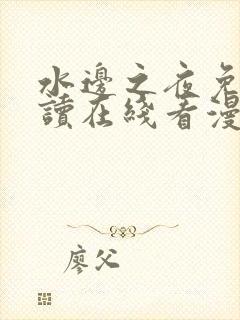 水邊之夜免
讀在綫看漫
廖父